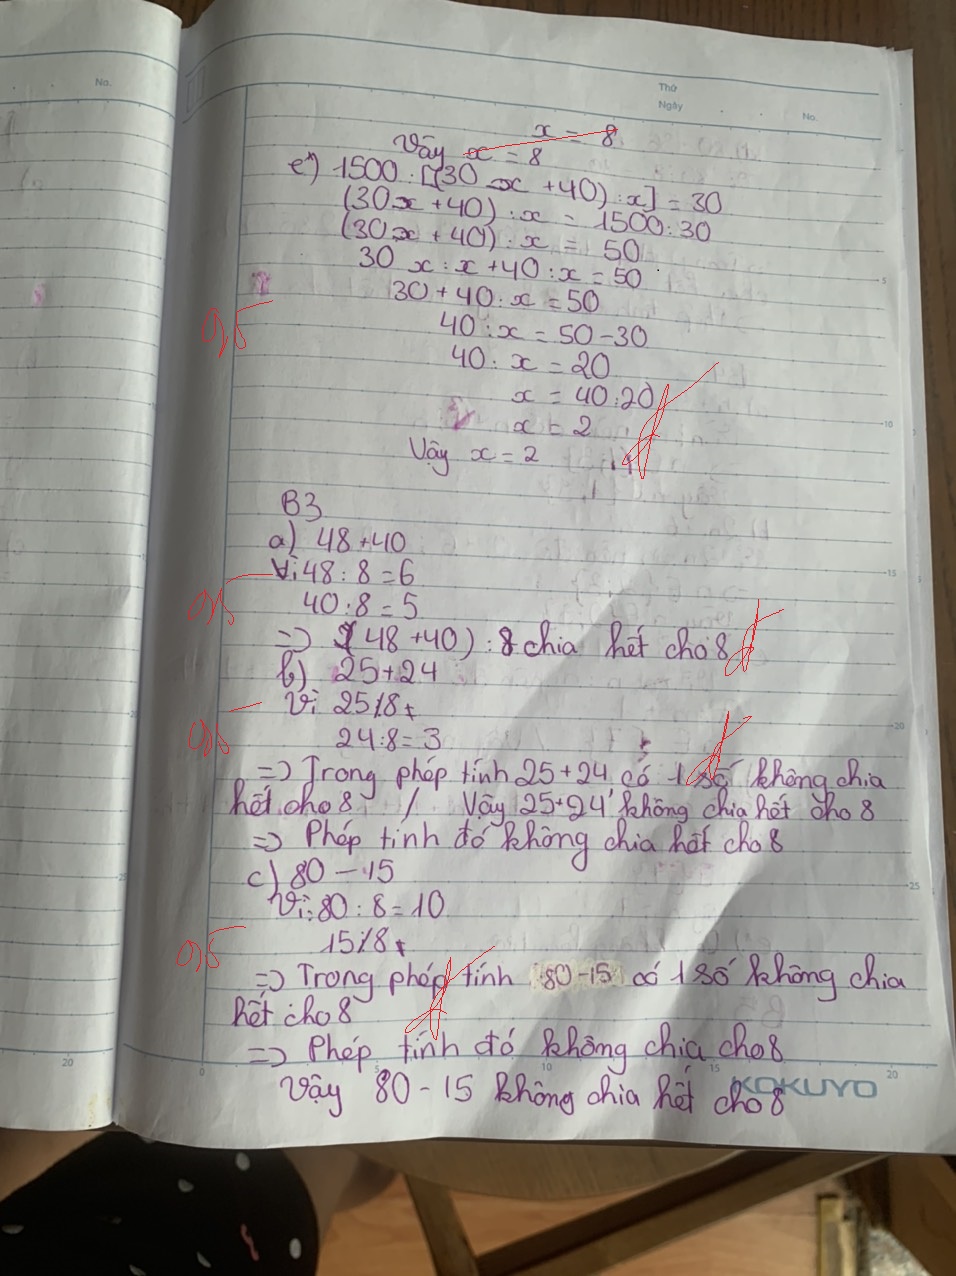 No.
Thứ
Ngày
No.
x = 8
Vậy x = 8
e*) 1500 : [(30 x + 40) : x] = 30
(30x + 40) : x = 1500 : 30
(30x + 40) : x = 50
30 x : x + 40 : x = 50
30 + 40 : x = 50
0,5
40 : x = 50 - 30
40 : x = 20
x = 40 : 20
x = 2
Vậy x = 2
B3
a) 48 + 40
Vì 48 : 8 = 6
40 : 8 = 5
=> (48 + 40) : 8 chia hết cho 8
b) 25 + 24
Vì 25 ⋮̸ 8
24 : 8 = 3
=> Trong phép tính 25 + 24 có 1 số không chia
hết cho 8 / Vậy 25 + 24 không chia hết cho 8
=> Phép tính đó không chia hết cho 8
c) 80 - 15
Vì: 80 : 8 = 10
0,5
15 ⋮̸ 8
=> Trong phép tính 80 - 15 có 1 số không chia
hết cho 8
=> Phép tính đó không chia cho 8
Vậy 80 - 15 không chia hết cho 8
KOKUYO